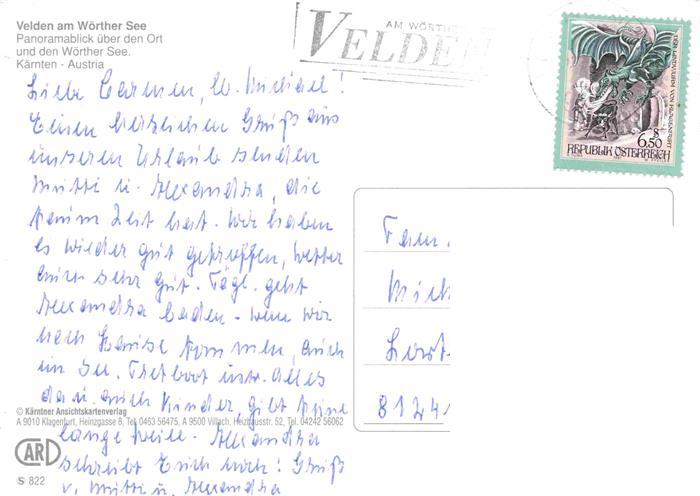 Velden am Wörther See
Panoramablick über den Ort
und den Wörther See.
Kärnten - Austria
AM WÖRTHE
VELDEN
DER LINDWURM VON KLAGENFURT
6,50 S
REPUBLIK ÖSTERREICH
Liebe Carmen, lb. Michael!
Einen herzlichen Gruß aus
unseren Urlaub senden
Mutti u. Alexandra, die
kaum Zeit hat. Wir haben
es wieder gut getroffen, Wetter
auch sehr gut. Tägl. geht
Alexandra baden - wenn wir
nach Hause kommen, auch
im See. Tretboot usw. Alles
da u. auch Kinder, gibt keine
lange Weile. Alexandra
schreibt Euch noch! Gruß
v. Mutti u. Alexandra
Fam.
Mich
8124
© Kärntner Ansichtskartenverlag
A 9010 Klagenfurt, Heinzgasse 8, Tel. 0463 56475, A 9500 Villach, 52, Tel. 04242 56062
CARD
S 822